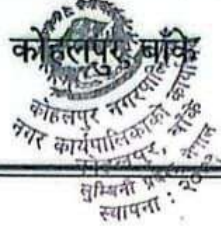 कोहलपुर, बाँके
कोहलपुर नगरपालिका
नगर कार्यपालिकाको कार्यालय
कोहलपुर, बाँके
लुम्बिनी प्रदेश, नेपाल
स्थापना :